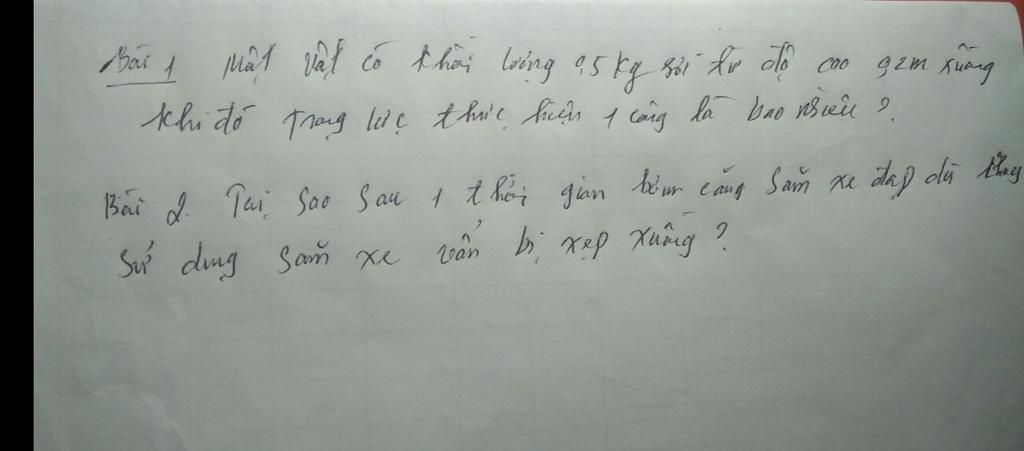 Bài 1 Một vật có khối lượng 0,5 kg rơi từ độ cao 0,2m xuống
khi đó trọng lực thực hiện 1 công là bao nhiêu?
Bài 2. Tại sao sau 1 thời gian bơm căng săm xe đạp dù không
sử dụng săm xe vẫn bị xẹp xuống?